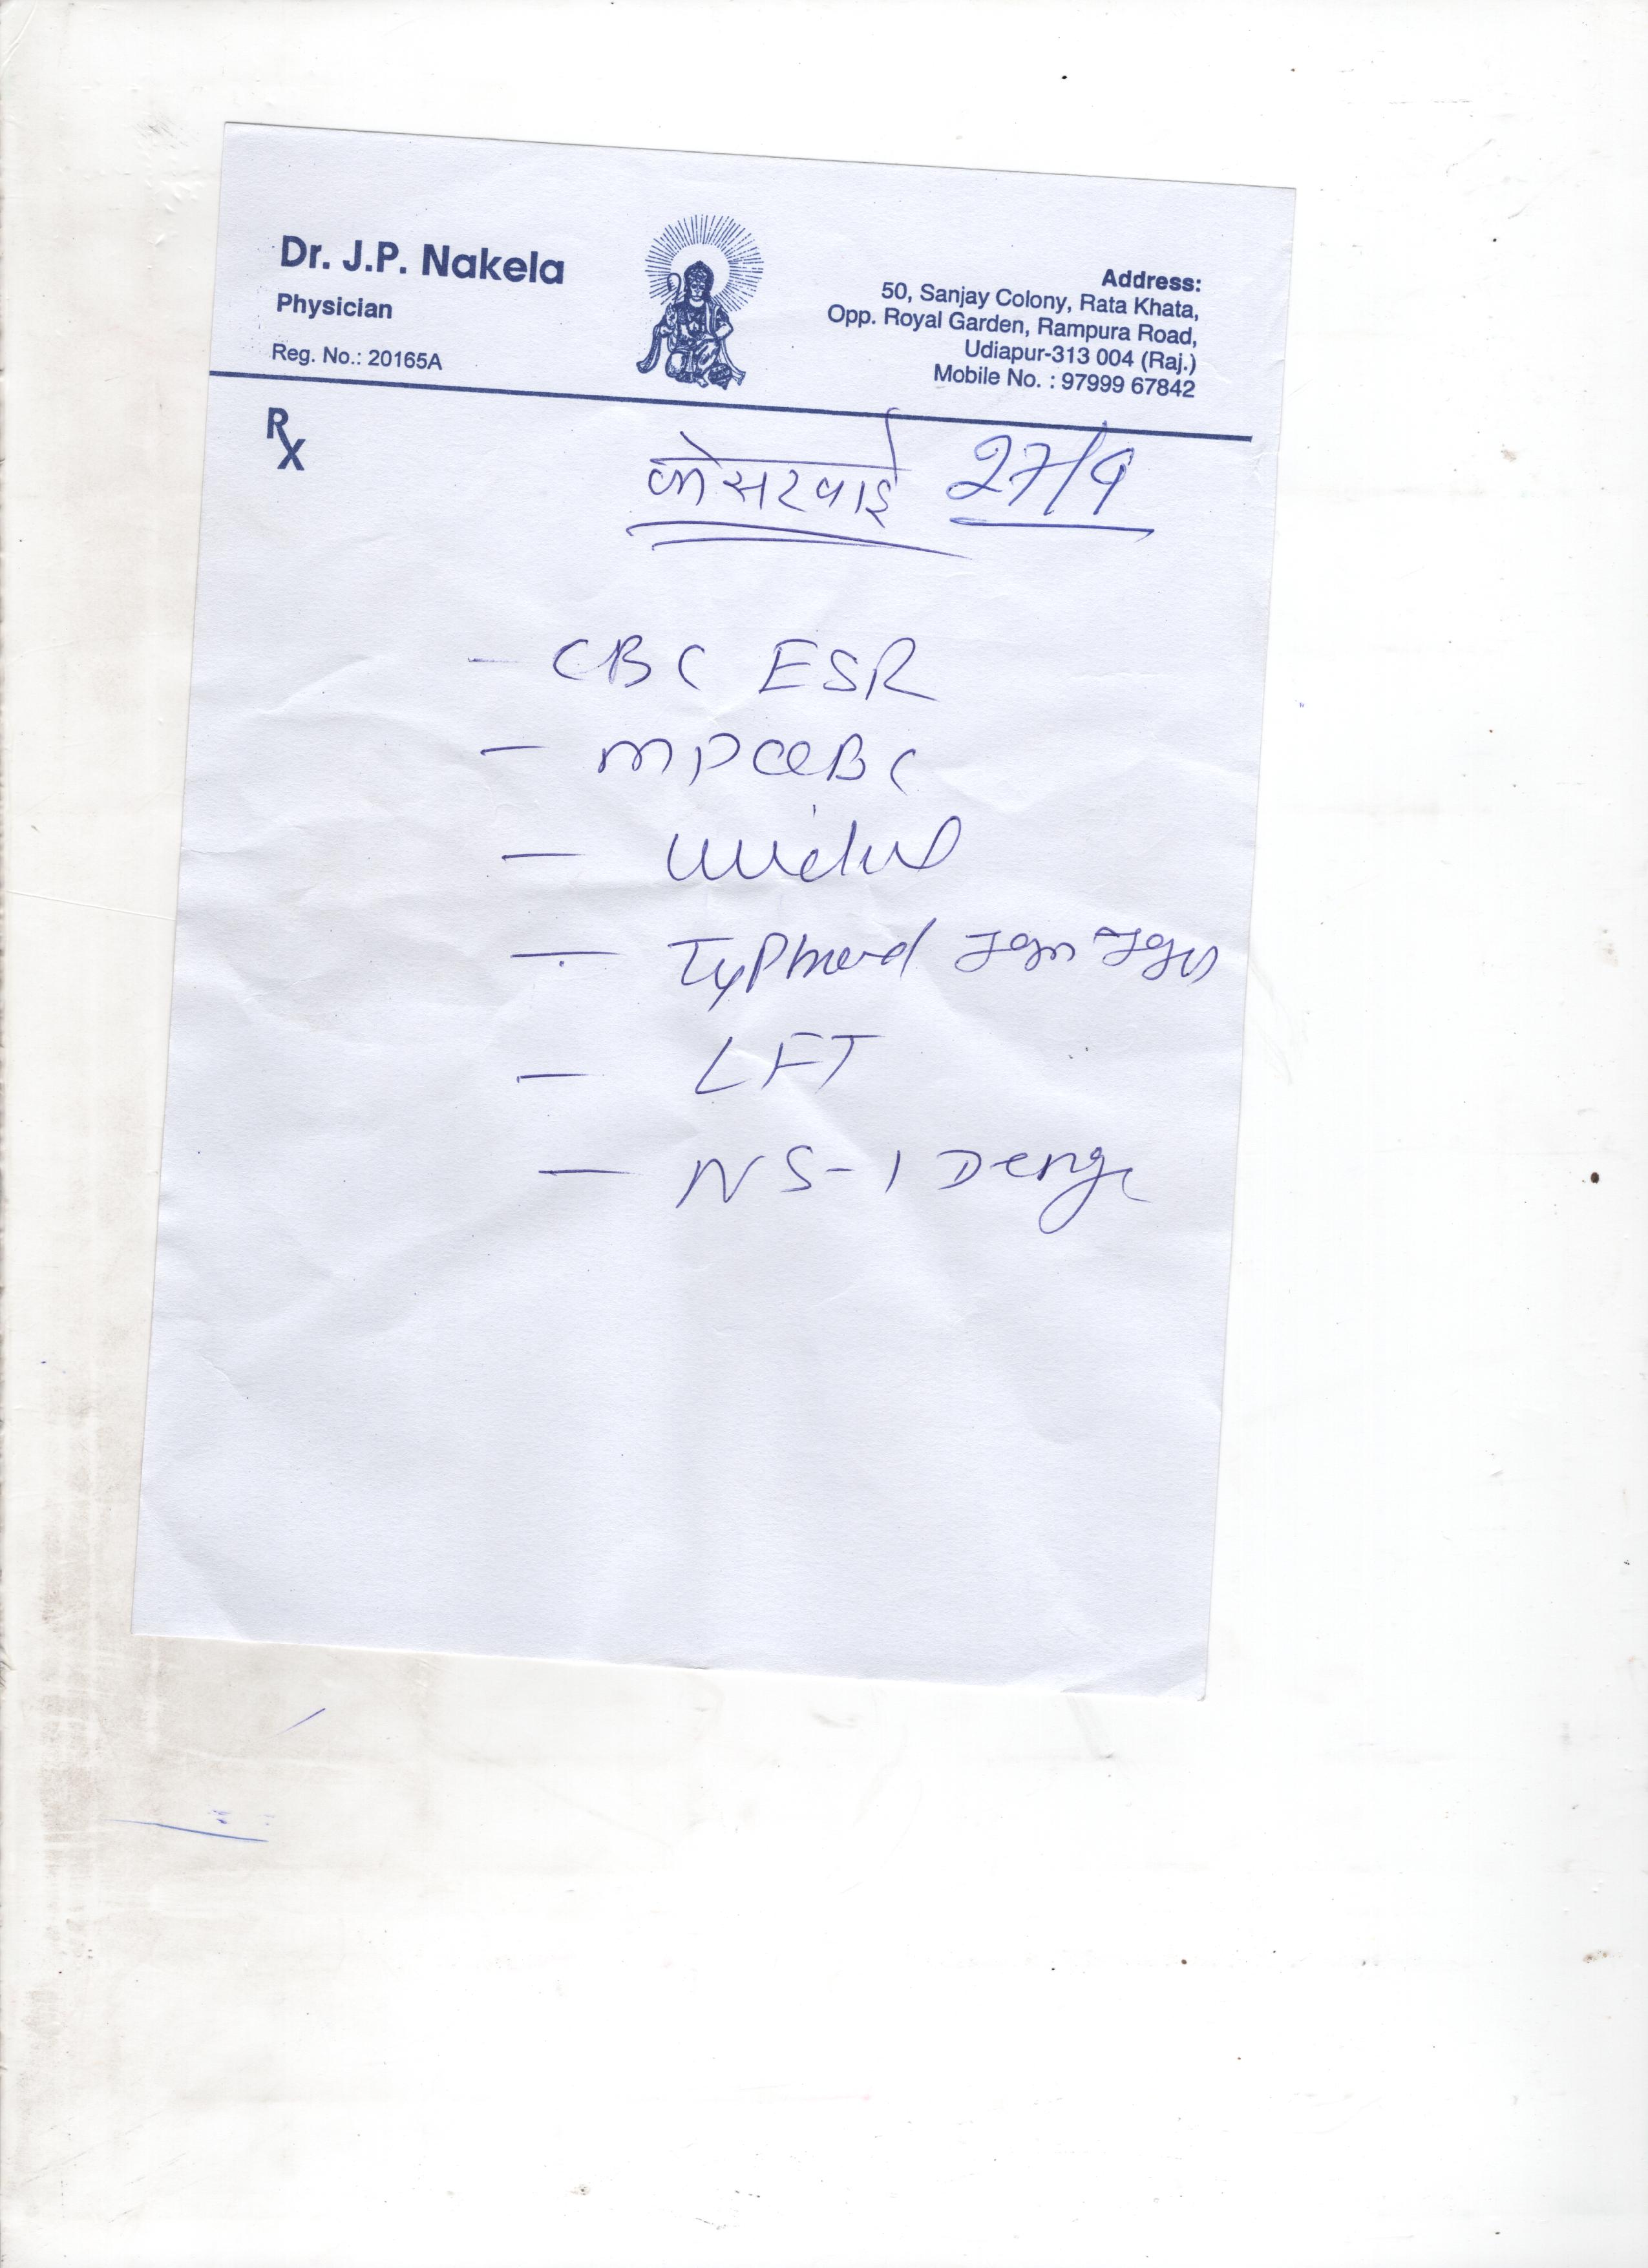 Dr. J.P. Nakela
Physician
Reg. No.: 20165A
Address:
50, Sanjay Colony, Rata Khata,
Opp. Royal Garden, Rampura Road,
Udiapur-313 004 (Raj.)
Mobile No. : 97999 67842
Rx
केसरबाई 27/9
- CBC ESR
- MP QBC
- Widal
- Typhoid IgM IgG
- LFT
- NS-1 Denge